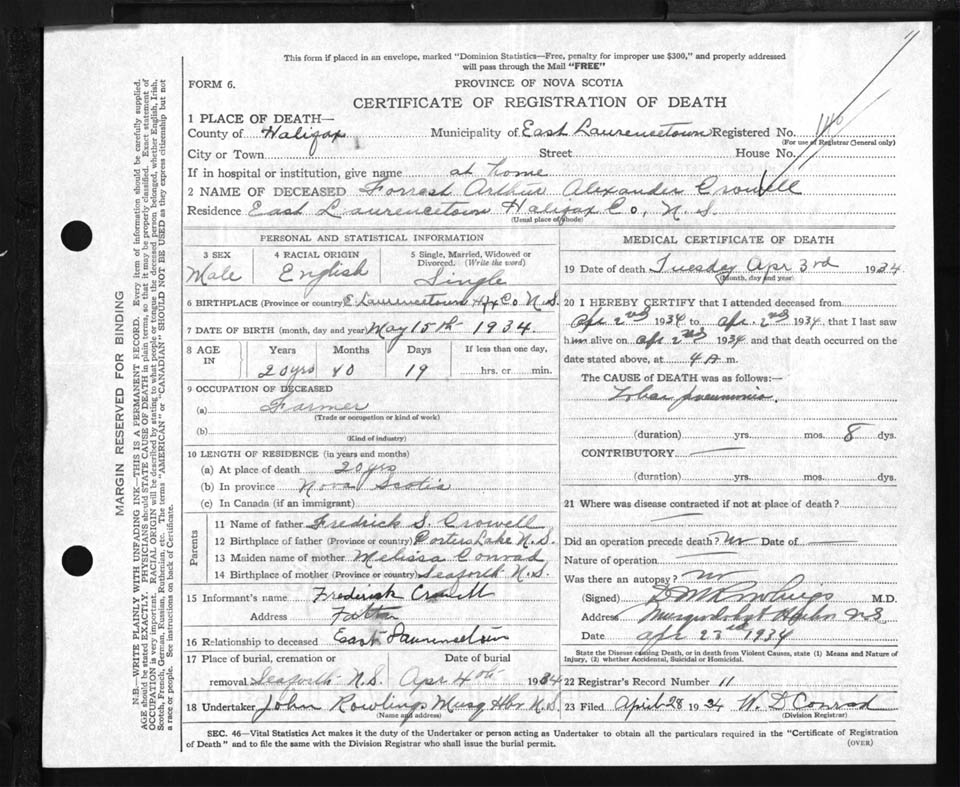 This form if placed in an envelope, marked "Dominion Statistics—Free, penalty for improper use $300," and properly addressed
will pass through the Mail "FREE"
FORM 6.
PROVINCE OF NOVA SCOTIA
CERTIFICATE OF REGISTRATION OF DEATH
1 PLACE OF DEATH—
County of Halifax Municipality of East Laurencetown Registered No. 146
(For use of Registrar General only)
City or Town Street House No.
If in hospital or institution, give name at home
2 NAME OF DECEASED Forrest Arthur Alexander Crowell
Residence East Laurencetown Halifax Co, N.S.
(Usual place of abode)
PERSONAL AND STATISTICAL INFORMATION
3 SEX Male
4 RACIAL ORIGIN English
5 Single, Married, Widowed or
Divorced. (Write the word)
Single
6 BIRTHPLACE (Province or country) E Laurencetown Hfx Co N.S.
7 DATE OF BIRTH (month, day and year) May 15th 1934.
8 AGE IN Years Months Days If less than one day,
20 yrs 10 19 hrs. or min.
9 OCCUPATION OF DECEASED
(a) Farmer
(Trade or occupation or kind of work)
(b)
(Kind of industry)
10 LENGTH OF RESIDENCE (in years and months)
(a) At place of death 20 yrs
(b) In province Nova Scotia
(c) In Canada (if an immigrant)
Parents
11 Name of father Fredrick S. Crowell
12 Birthplace of father (Province or country) Porters Lake N.S.
13 Maiden name of mother Melissa Conrad
14 Birthplace of mother (Province or country) Seaforth N.S.
15 Informant's name Frederick Crowell
Address Father
16 Relationship to deceased East Laurencetown
17 Place of burial, cremation or Date of burial
removal Seaforth N.S. Apr 4th 1934
18 Undertaker John Rowlings Musq Hbr N.S.
(Name and address)
MEDICAL CERTIFICATE OF DEATH
19 Date of death Tuesday Apr 3rd 1934
(Month, day and year)
20 I HEREBY CERTIFY that I attended deceased from
Apr 2nd 1934 to Apr. 2nd 1934, that I last saw
him alive on Apr 2nd 1934 and that death occurred on the
date stated above, at 4 A m.
The CAUSE OF DEATH was as follows:—
Lobar pneumonia.
(duration) yrs. mos. 8 dys.
CONTRIBUTORY
(duration) yrs. mos. dys.
21 Where was disease contracted if not at place of death?
Did an operation precede death? no Date of
Nature of operation
Was there an autopsy? no
(Signed) Rowlings M.D.
Address Musquodoboit Harbor N S
Date Apr 1934
State the Disease causing Death, or in death from Violent Causes, state (1) Means and Nature of
Injury, (2) whether Accidental, Suicidal or Homicidal.
22 Registrar's Record Number 11
23 Filed April 28 1934 W. D Conrad
(Division Registrar)
SEC. 46—Vital Statistics Act makes it the duty of the Undertaker or person acting as Undertaker to obtain all the particulars required in the "Certificate of Registration
of Death" and to file the same with the Division Registrar who shall issue the burial permit.
(OVER)
MARGIN RESERVED FOR BINDING
N.B.—WRITE PLAINLY WITH UNFADING INK—THIS IS A PERMANENT RECORD. Every item of information should be carefully supplied.
AGE should be stated EXACTLY. PHYSICIANS should STATE CAUSE OF DEATH in plain terms, so that it may be properly classified. Exact statement of
OCCUPATION is very important. RACIAL ORIGIN will be described by stating to what people or tongue the deceased person belonged, whether English, Irish,
Scotch, French, German, Russian, Ruthenian, etc. The terms "AMERICAN" or "CANADIAN" SHOULD NOT BE USED as they express citizenship but not
a race or people. See instructions on back of Certificate.